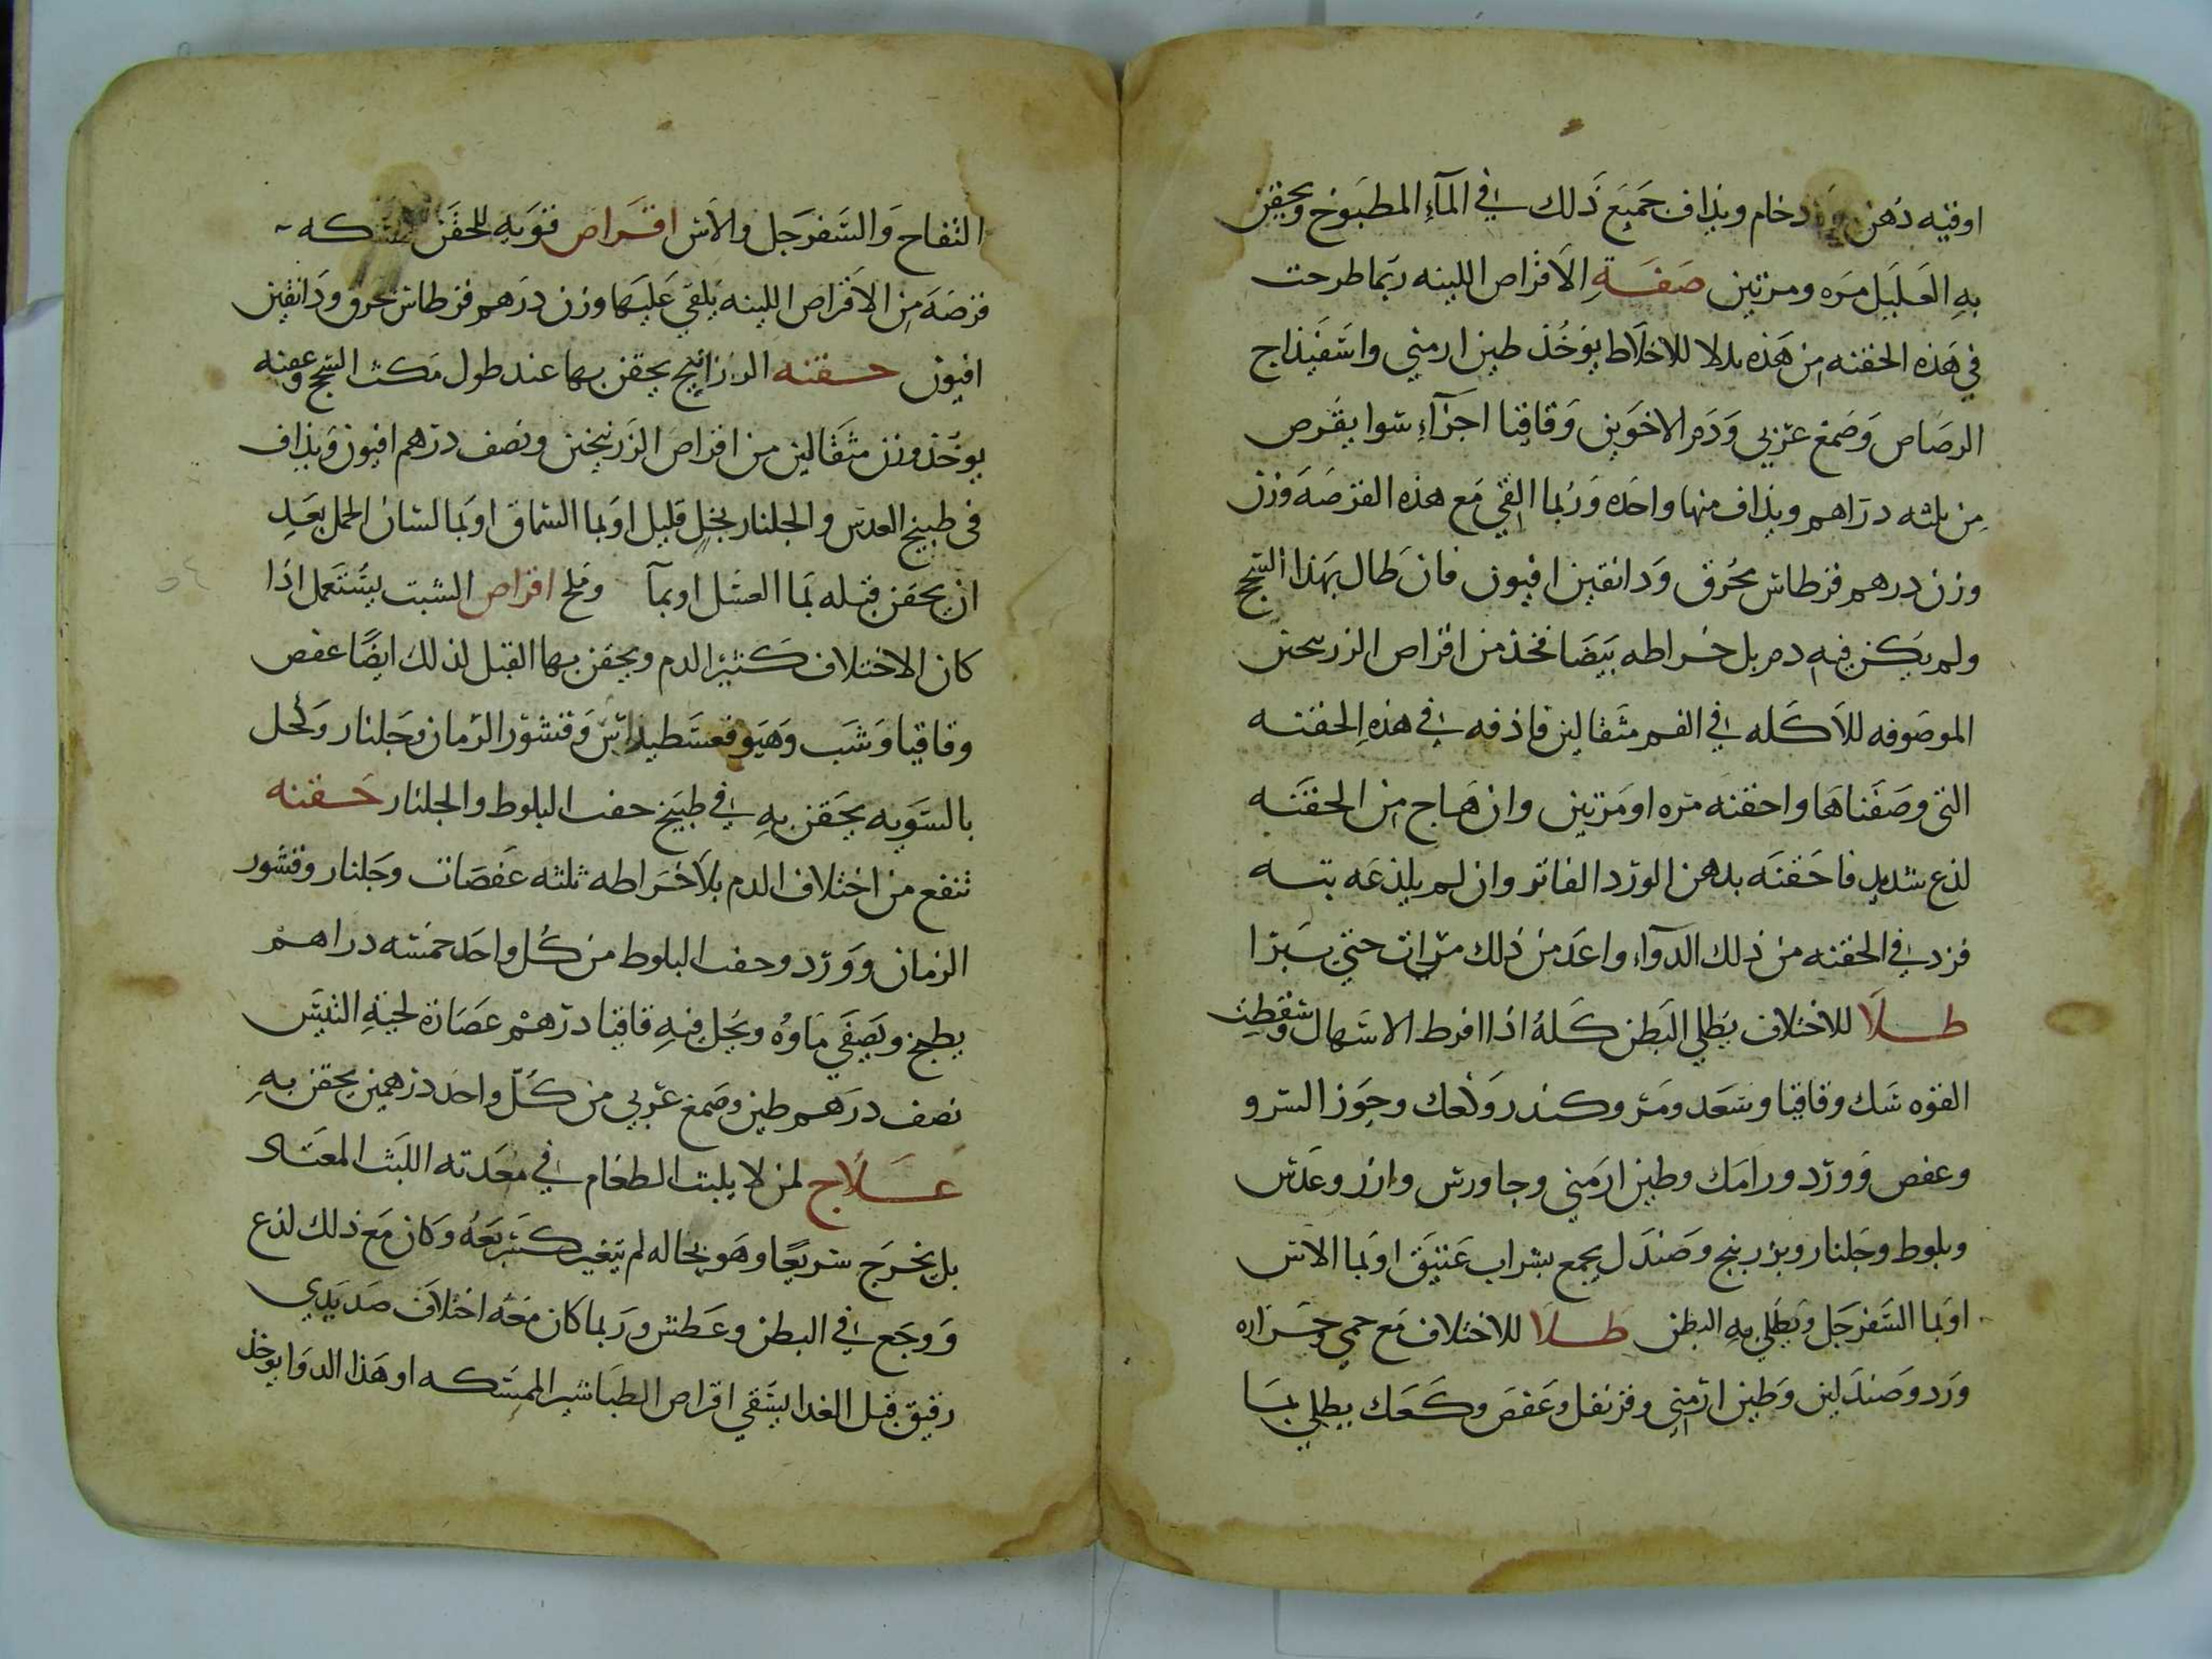 اوقيه دهن ورد خام ويذاف جميع ذلك في المآء المطبوخ ويحقن
به العليل مره ومرتين صفة الاقراص اللينه ربما طرحت
في هذه الحقنه من هذه بدلا للاخلاط يوخذ طين ارمني واسفيذاج
الرصاص وصمغ عربي ودم الاخوين وقاقيا اجزآء سوا يقرص
من ثلثه دراهم ويذاف منها واحده وربما القي مع هذه القرصه وزن
وزن درهم قرطاس محرق ودانقين افيون فان طال بهذا السحج
ولم يكن فيه دم بل خراطه بيضا فخذ من اقراص الزرنيخين
الموصوفه للاكله في الفم مثقالين فاذفه في هذه الحقنه
التي وصفناها واحقنه مره او مرتين وان هاج من الحقنه
لذع شديد فاحقنه بدهن الورد الفاتر وان لم يلذعه بته
فزد في الحقنه من ذلك الدوآء واعد من ذلك مرات حتي يبرا
طلا للاختلاف يطلي البطن كله اذا افرط الاسهال وسقطت
القوه سك وقاقيا وسعد ومر وكندر وكعك وجوز السرو
وعفص وورد ورامك وطين ارمني وجاورس وارز وعدس
وبلوط وجلنار وبزر بنج وصندل يجمع بشراب عتيق او بما الاس
او بما السفرجل ويطلي به البطن طلا للاختلاف مع حمي وحراره
ورد وصندلين وطين ارمني وقرنفل وعفص وكعك يطلي بما
التفاح والسفرجل والاس اقراص قويه للحقن ممسكه
قرصه من الاقراص اللينه يلقي عليها وزن درهم قرطاس محرق ودانقين
افيون حقنه الزرانيخ يحقن بها عند طول مكث السحج وعفنه
يوخذ وزن مثقالين من اقراص الزرنيخين ونصف درهم افيون ويذاف
في طبيخ العدس والجلنار بخل قليل او بما السماق او بما لسان الحمل بعد
ان يحقن قبله بما العسل او بمآ وملح اقراص الشبت يستعمل اذا
كان الاختلاف كثير الدم ويحقن بها القبل لذلك ايضا عفص
وقاقيا وشب وهيوفسطيداس وقشور الرمان وجلنار وكحل
بالسويه يحقن به في طبيخ جفت البلوط والجلنار حقنه
تنفع من اختلاف الدم بلا خراطه ثلثه عفصات وجلنار وقشور
الرمان وورد وجفت البلوط من كل واحد خمسه دراهم
يطبخ ويصفي ماوه ويحل فيه قاقيا درهم عصارة لحية التيس
نصف درهم طين وصمغ عربي من كل واحد درهمين يحقن به
علاج لمن لا يلبث الطعام في معدته اللبث المعتاد
بل يخرج سريعا وهو بحاله لم يتغير كثير تغيره وكان مع ذلك لذع
ووجع في البطن وعطش وربما كان معه اختلاف صديدي
رقيق قبل الغدا يسقي اقراص الطباشير الممسكه او هذا الدوا يوخذ